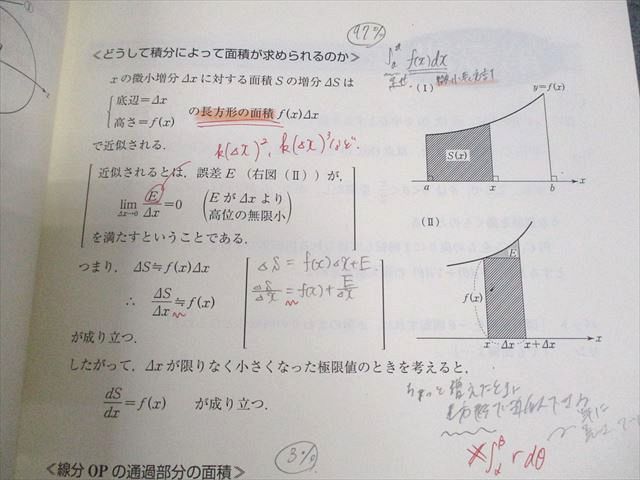 99%
<どうして積分によって面積が求められるのか>
xの微小増分Δxに対する面積Sの増分ΔSは
底辺=Δx
高さ=f(x)
の長方形の面積f(x)Δx
で近似される.
k(Δx)², k(Δx)³など
近似されるとは, 誤差E (右図(Ⅱ)) が,
lim Δx→0 E/Δx=0 (EがΔxより高位の無限小)
を満たすということである.
つまり, ΔS≒f(x)Δx
∴ ΔS/Δx≒f(x)
ΔS = f(x)Δx+E
ΔS/Δx = f(x)+E/Δx
が成り立つ.
したがって, Δxが限りなく小さくなった極限値のときを考えると,
dS/dx=f(x) が成り立つ.
f(x)dx
(Ⅰ)
y=f(x)
S(x)
a x b x
(Ⅱ)
E
f(x)
x Δx x+Δx x
ちょっと増えたときに
∫ r dθ
3%
<線分OPの通過部分の面積>